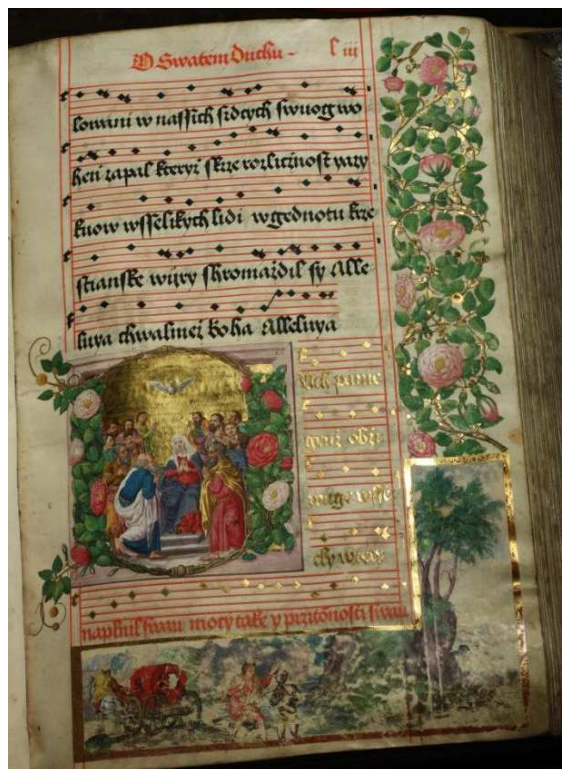 O Swatem Duchu
lowani w nassich srdcych swuog wo
heń zapal kteryż skrze rozlicżnost yazy
kuow wsselikych lidi w gednotu krze
stianske wiry shromażdil sy Alle
luya chwalmeż boha Alleluya
uch panie
genż obżi
wuge wsse
cky wiecy
naplnil swau mocy take y przitōnosti swau